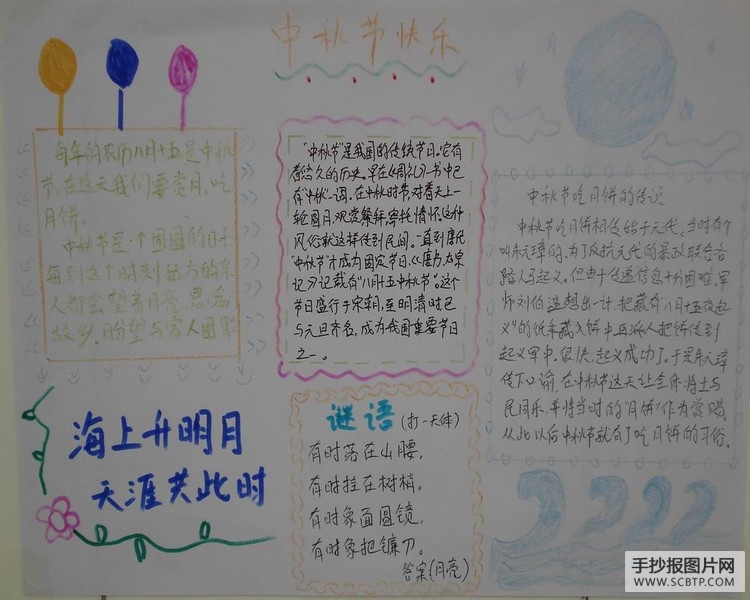 中秋节快乐
每年的农历八月十五是中秋
节。在这天我们要赏月,吃
月饼。
中秋节是一个团圆的日子。
每到这个时刻远方的亲
人都会望着月亮,思念
故乡,盼望与家人团聚
"中秋节"是我国的传统节日。它有
着悠久的历史。早在《周礼》一书中已
有"中秋"一词。在中秋时节,对着天上一
轮圆月,观赏祭拜寄托情怀,这种
风俗就这样传到民间。一直到唐代
"中秋节"才成为固定节日。《唐书太宗
记》记载有"八月十五中秋节"。这个
节日盛行于宋朝,至明清时已
与元旦齐名,成为我国重要节日
之一。
中秋节吃月饼的传说
中秋节吃月饼相传始于元代。当时有个
叫朱元璋的,为了反抗元代的暴政联合各
路人马起义。但由于传递信息十分困难。军
师刘伯温想出一计,把藏有"八月十五夜起
义"的纸条藏入饼中再派人把饼传到
起义军中。很快,起义成功了。于是朱元璋
传下口谕,在中秋节这天让全体将士与
民同乐,并将当时的"月饼"作为赏赐。
从此以后中秋节就有了吃月饼的习俗。
海上升明月
天涯共此时
谜语(打一天体)
有时落在山腰,
有时挂在树梢。
有时象面圆镜,
有时象把镰刀。
答案(月亮)
手抄报图片网
www.SCBTP.COM